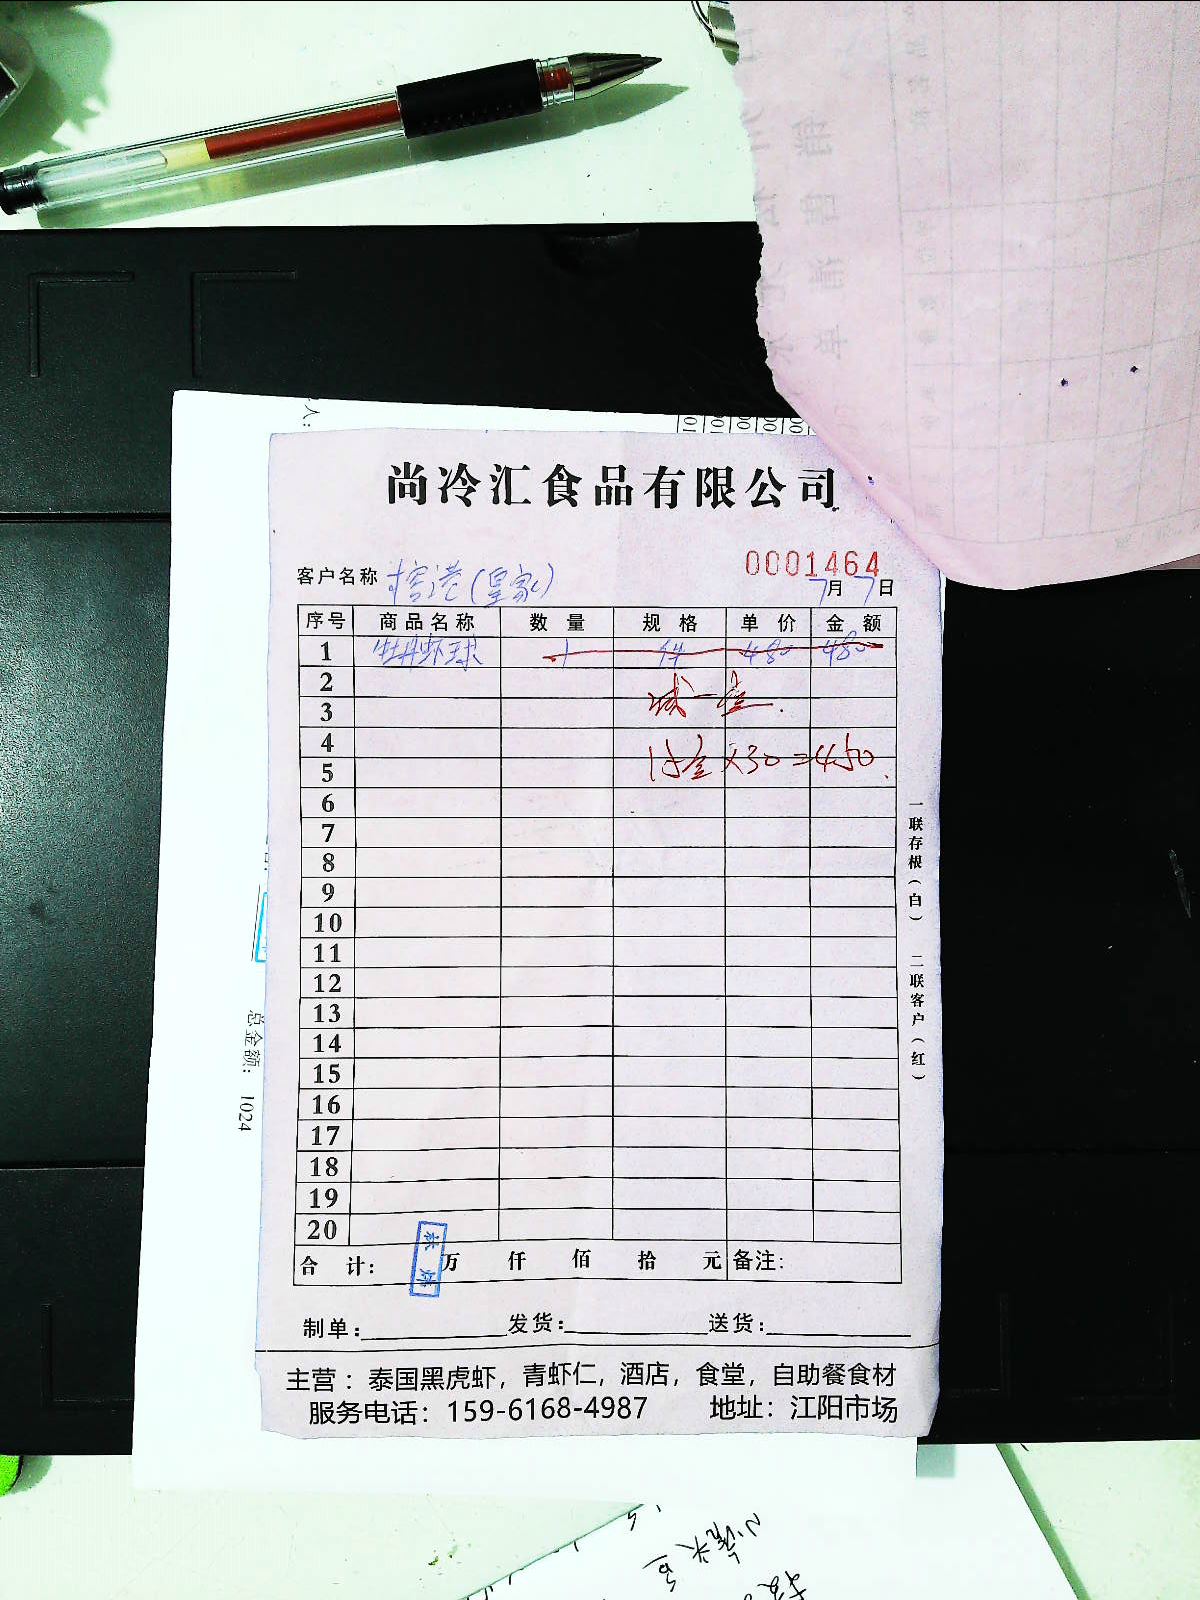 尚冷汇食品有限公司
0001464
客户名称 (皇家) 7月7日
序号 商品名称 数量 规格 单价 金额
1 牡丹虾球 1 件 480 480
2
减一盒.
3
4
15盒×30=450.
5
6
7
8
9
10
11
12
13
14
15
16
17
18
19
20
合计: 万 仟 佰 拾 元 备注:
制单: 发货: 送货:
主营：泰国黑虎虾，青虾仁，酒店，食堂，自助餐食材
服务电话：159-6168-4987 地址：江阳市场
一联存根（白） 二联客户（红）
总金额: 1024